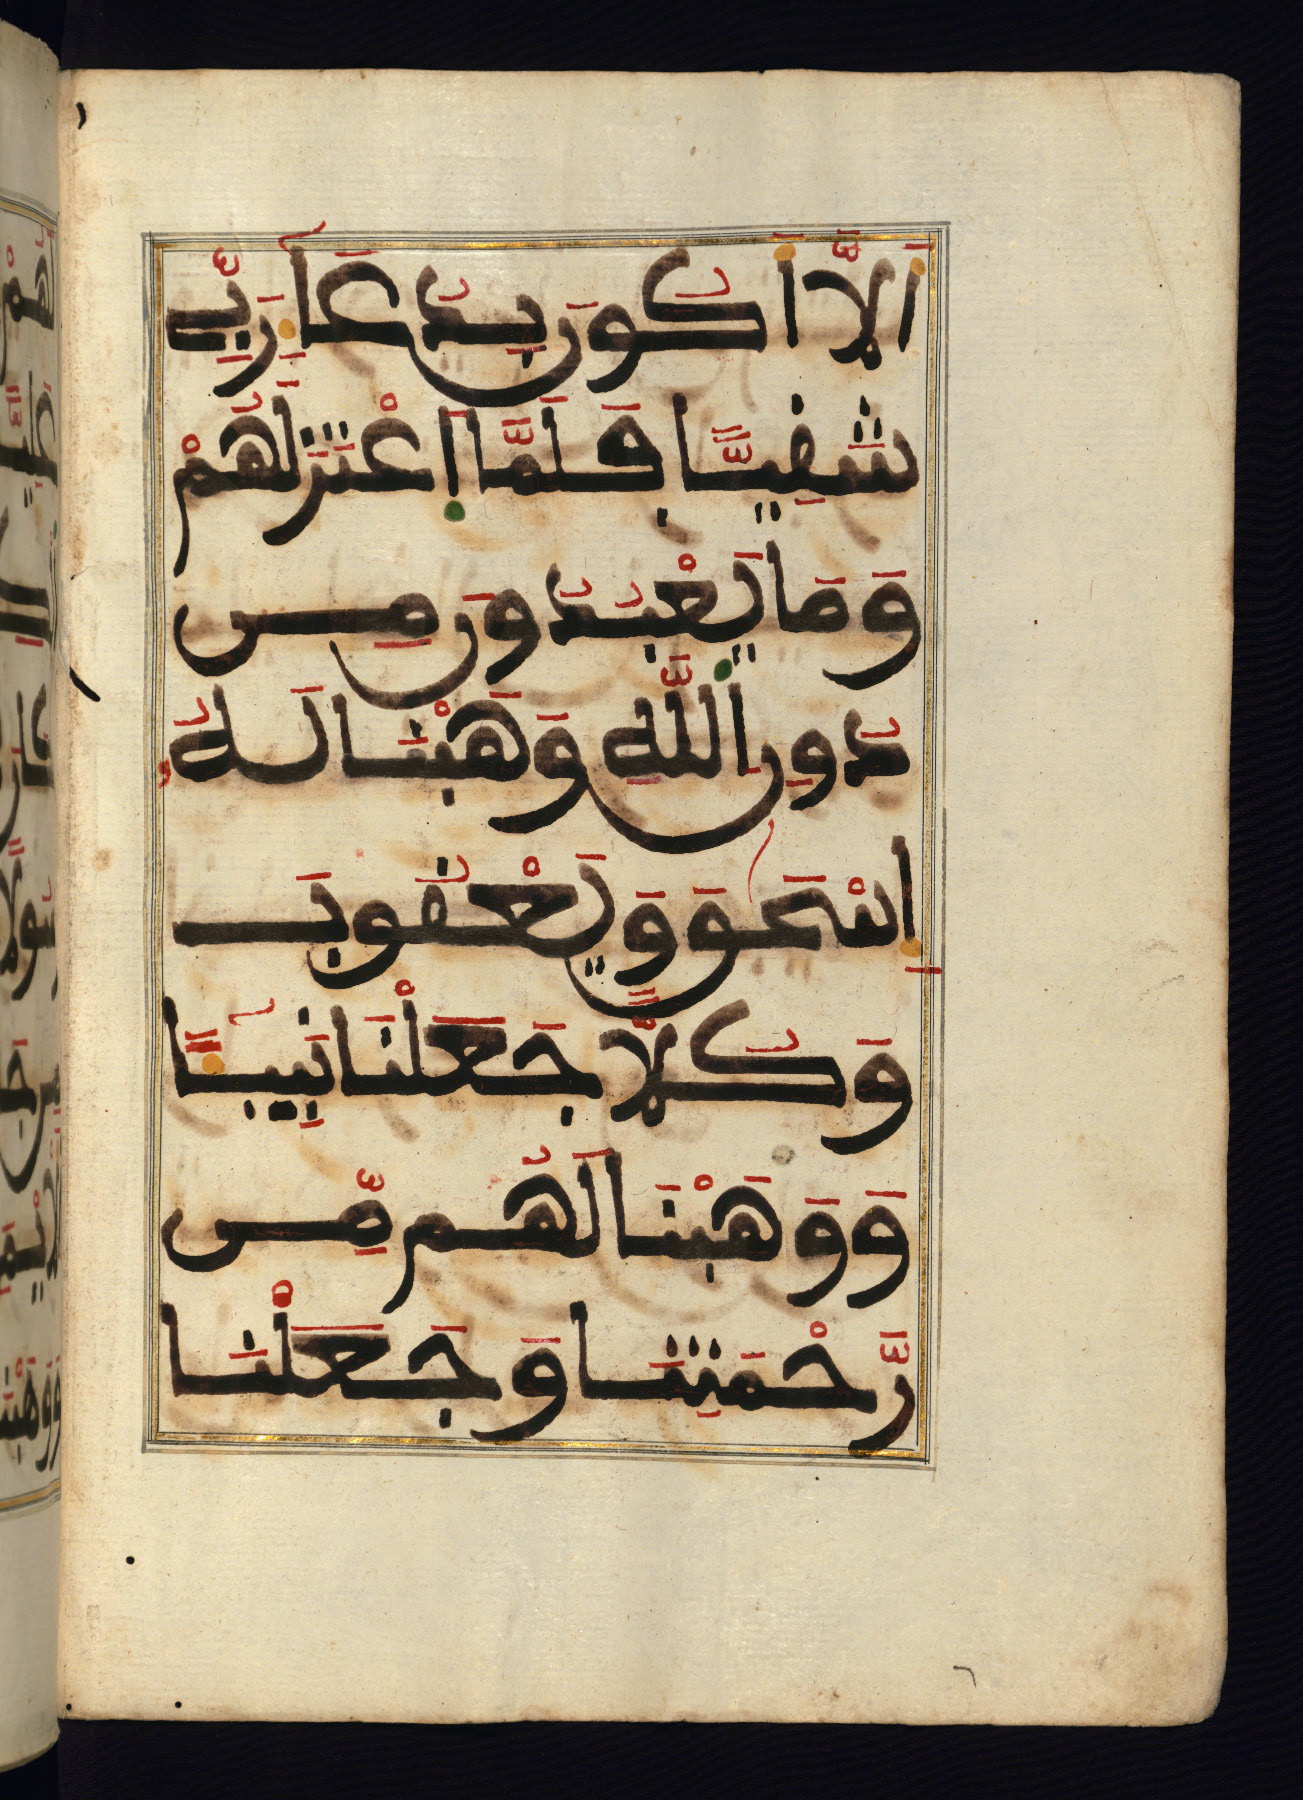 أَلَّا أَكُونَ بِدُعَآءِ رَبِّى
شَقِيًّا فَلَمَّا اَعْتَزَلَهُمْ
وَمَا يَعْبُدُونَ مِن
دُونِ اِللَّهِ وَهَبْنَا لَهُ
إِسْحَقَ وَيَعْقُوبَ
وَكُلًّا جَعَلْنَا نَبِيٓـًٔا
وَوَهَبْنَا لَهُم مِّن
رَّحْمَتِنَا وَجَعَلْنَا